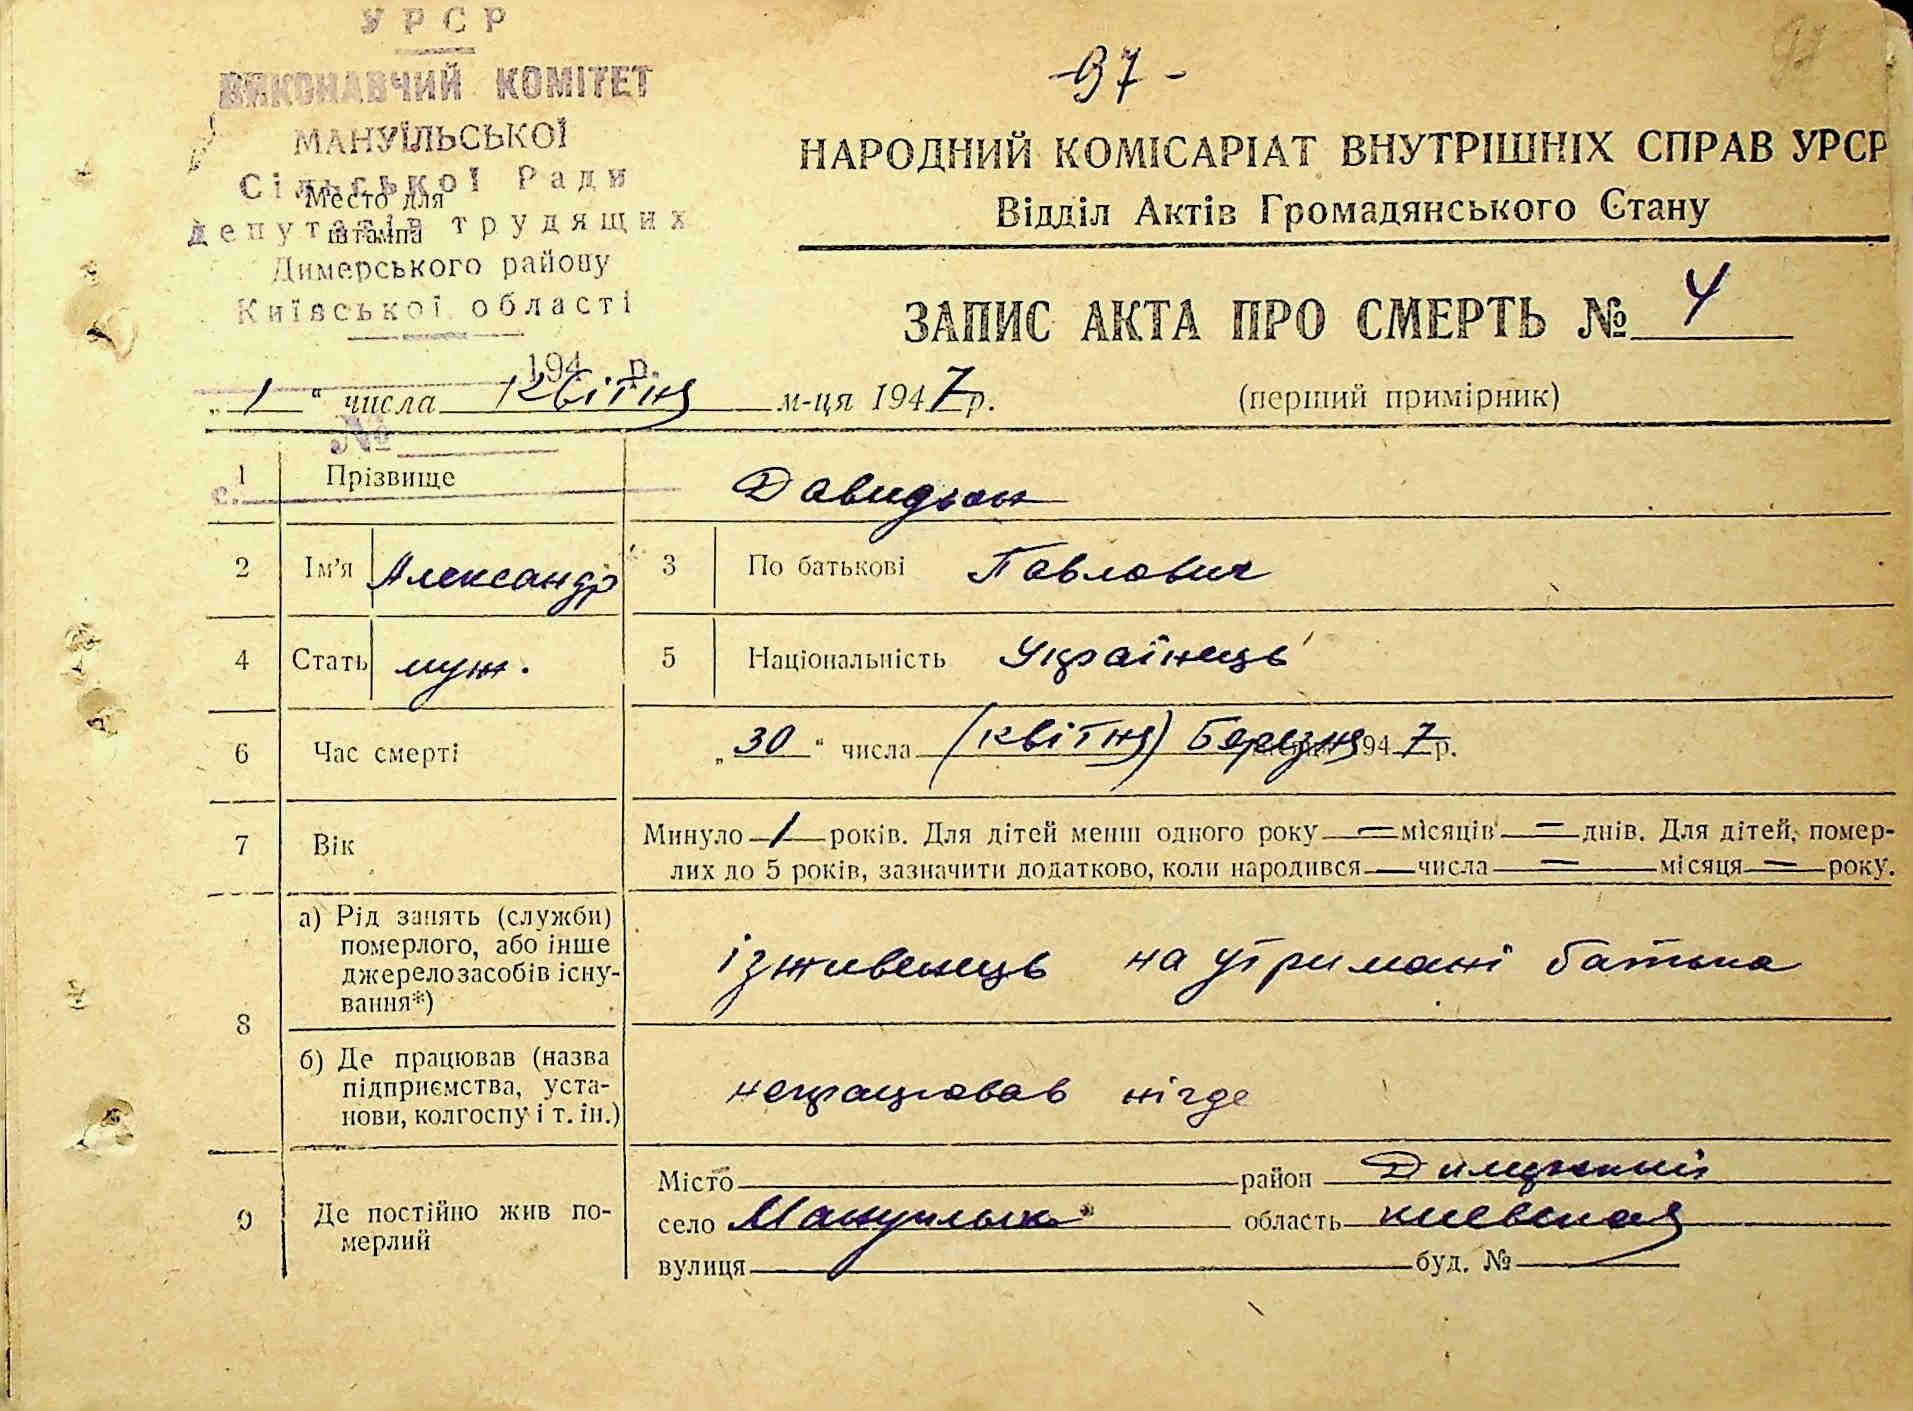 УРСР
ВИКОНАВЧИЙ КОМІТЕТ
МАНУЇЛЬСЬКОЇ
Сільської Ради
депутатів трудящих
Димерського району
Київської області
194 р.
№
с.
Место для
штампа
-97-
НАРОДНИЙ КОМІСАРІАТ ВНУТРІШНІХ СПРАВ УРСР
Відділ Актів Громадянського Стану
ЗАПИС АКТА ПРО СМЕРТЬ № 4
„1“ числа Квітня м-ця 1947 р.
(перший примірник)
1 Прізвище Давидюк
2 Ім'я Александр 3 По батькові Павлович
4 Стать муж. 5 Національність Українець
6 Час смерті „30“ числа (квітня) Березня 1947 р.
7 Вік Минуло 1 років. Для дітей менш одного року — місяців — днів. Для дітей, помер-
лих до 5 років, зазначити додатково, коли народився — числа — місяця — року.
8 а) Рід занять (служби)
померлого, або інше
джерело засобів існу-
вання*)
іждивенець на утримані батька
б) Де працював (назва
підприємства, уста-
нови, колгоспу і т. ін.)
непрацював нігде
9 Де постійно жив по-
мерлий
Місто район Димерский
село область киевская
вулиця буд. №